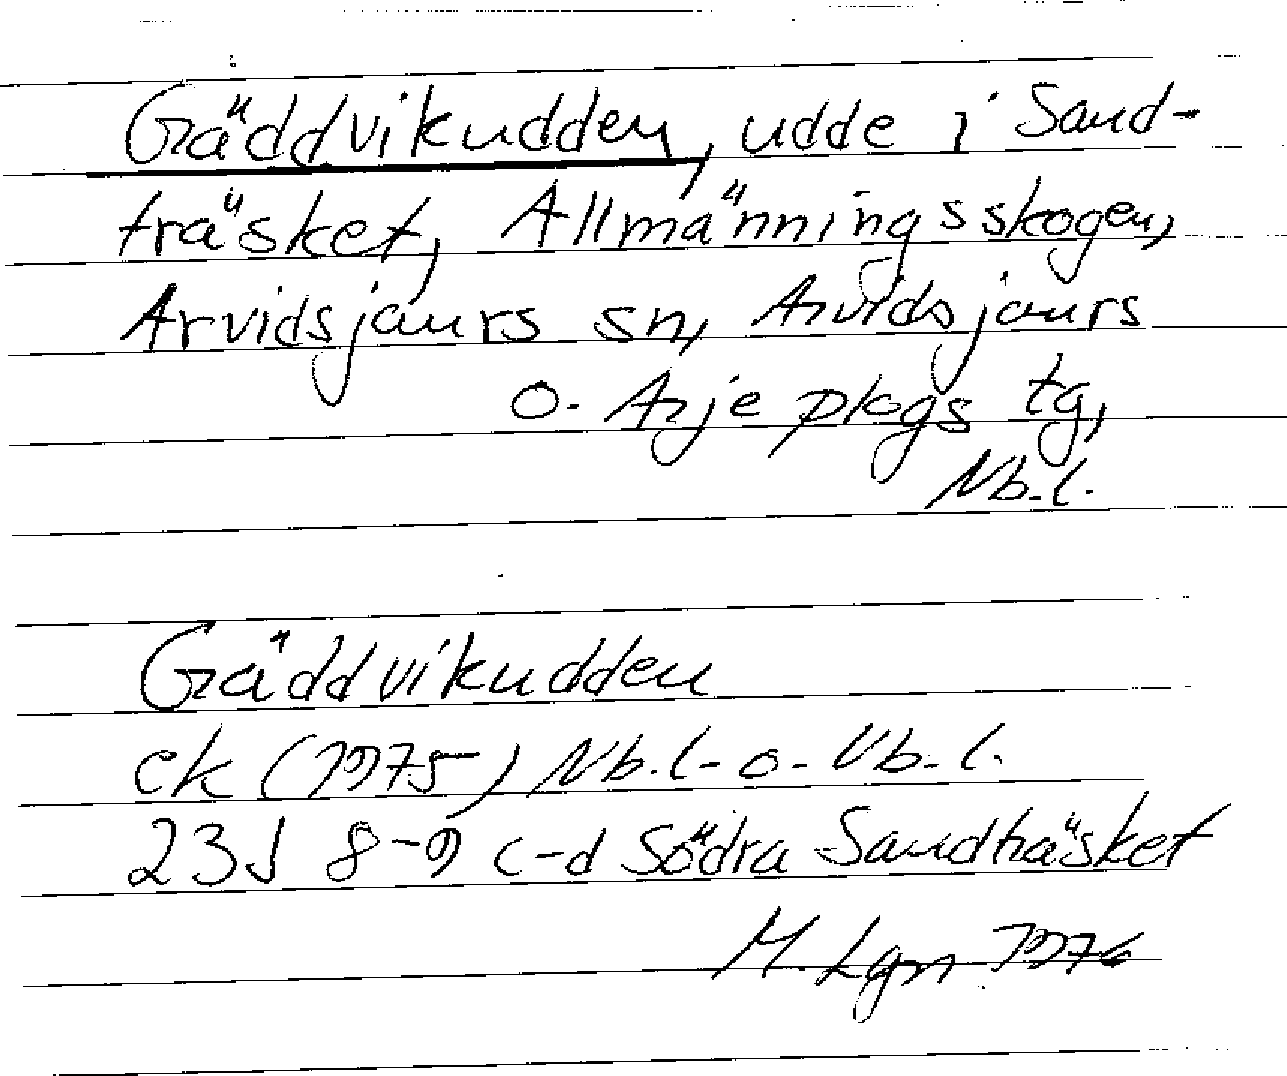 Gäddvikudden, udde i Sand-
träsket, Allmänningsskogen,
Arvidsjaurs sn, Arvidsjaurs
o. Arjeplogs tg,
Nb. l.
Gäddvikudden
ek (1975) Nb. l. o. Vb. l.
23J 8-9 c-d Södra Sandträsket
M. Lgn 1976